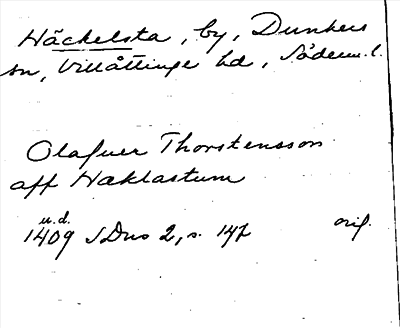 Häckelsta, by, Dunkers
sn, Villåttinge hd, Söderm. l.
Olafuer Thorstensson
aff Haklastum
u.d.
1409 SDns 2, s. 147 orig.